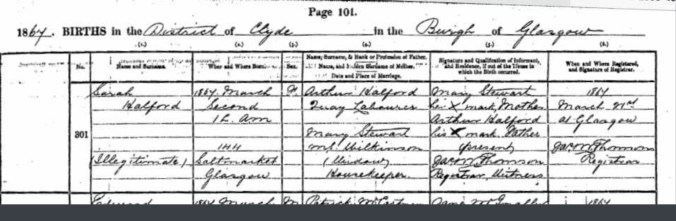 Page 101.
1864. BIRTHS in the District of Clyde in the Burgh of Glasgow
No.
Name and Surname.
When and Where Born.
Sex.
Name, Surname, & Rank or Profession of Father.
Name, and Maiden Surname of Mother.
Date and Place of Marriage.
Signature and Qualification of Informant,
and Residence, if out of the House in
which the Birth occurred.
When and Where Registered,
and Signature of Registrar.
301
Sarah
Halford
(Illegitimate)
1864, March
Second
1h. Am
144
Saltmarket
Glasgow
F
Arthur Halford
Quay Labourer
Mary Stewart
M.S. Wilkinson
(Widow)
Housekeeper
Mary Stewart
her X mark, Mother
Arthur Halford
his X mark. Father
(present)
Thomson
Registrar, Witness
1864
March 21st
at Glasgow
Thomson
Registrar
1864 March
M
Patrick
1864